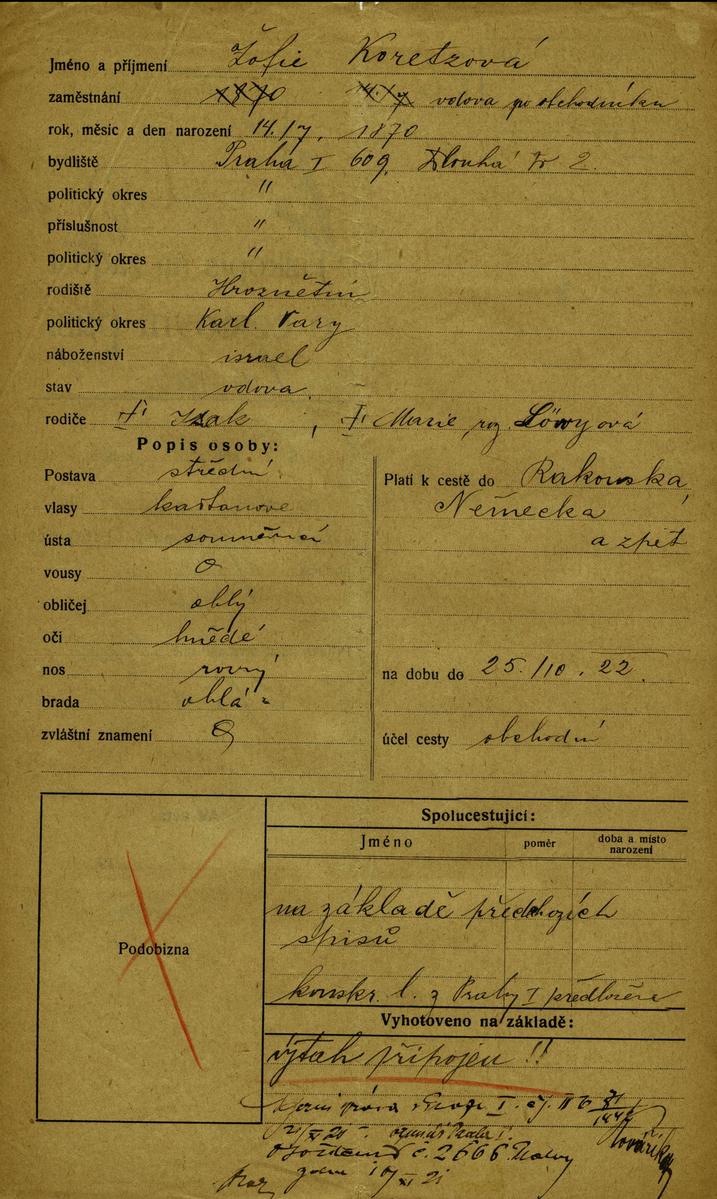 Jméno a příjmení Žofie Koretzová
zaměstnání 1870 14./7 vdova po obchodníku
rok, měsíc a den narození 14./7, 1870
bydliště Praha I 609, Dlouhá tř 2.
politický okres "
příslušnost "
politický okres "
rodiště Hroznětín
politický okres Karl. Vary
náboženství israel
stav vdova
rodiče † Isak, † Marie roz. Löwyová
Popis osoby:
Postava střední
vlasy kaštanové
ústa souměrná
vousy 0
obličej oblý
oči hnědé
nos rovný
brada oblá
zvláštní znamení 0
Platí k cestě do Rakouska,
Německa
a zpět
na dobu do 25./10. 22.
účel cesty obchodní
Podobizna
Spolucestující:
Jméno poměr doba a místo narození
na základě předchozích
spisů
konskr. l. z Prahy I předložena
Vyhotoveno na základě:
výtah připojen !!
I. čj. II
č. 2666